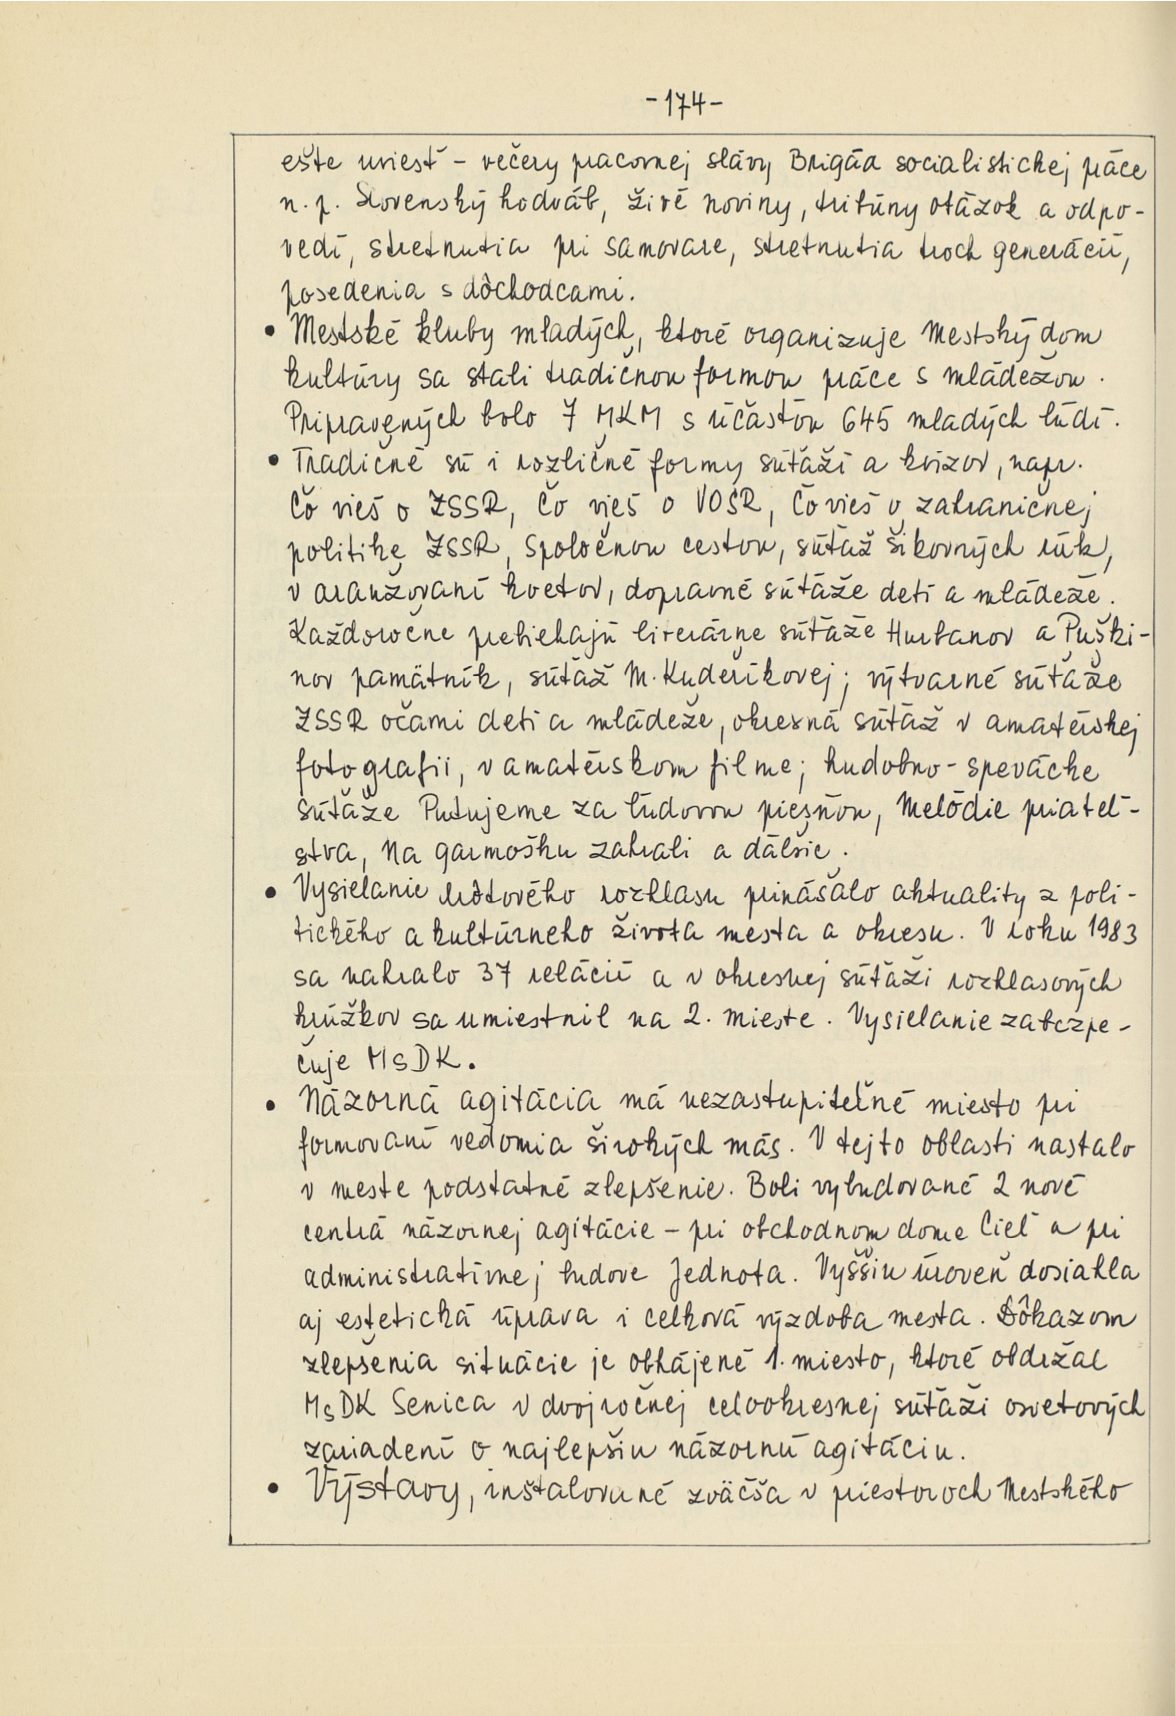 -174-
ešte uviesť - večery pracovnej slávy Brigád socialistickej práce
n. p. Slovenský hodváb, živé noviny, tribúny otázok a odpo-
vedí, stretnutia pri samovare, stretnutia troch generácií,
posedenia s dôchodcami.
• Mestské kluby mladých, ktoré organizuje Mestský dom
kultúry sa stali tradičnou formou práce s mládežou.
Pripravených bolo 7 MKM s účasťou 645 mladých ľudí.
• Tradičné sú i rozličné formy súťaží a kvízov, napr.
Čo vieš o ZSSR, Čo vieš o VOSR, Čo vieš o zahraničnej
politike ZSSR, Spoločnou cestou, súťaž šikovných rúk,
v aranžovaní kvetov, dopravné súťaže detí a mládeže.
Každoročne prebiehajú literárne súťaže Hurbanov a Puški-
nov pamätník, súťaž M. Kudeříkovej; výtvarné súťaže
ZSSR očami detí a mládeže, okresná súťaž v amatérskej
fotografii, v amatérskom filme; hudobno-spevácke
súťaže Putujeme za ľudovou piesňou, Melódie priateľ-
stva, Na garmošku zahrali a ďalšie.
• Vysielanie drôtového rozhlasu prinášalo aktuality z poli-
tického a kultúrneho života mesta a okresu. V roku 1983
sa nahralo 37 relácií a v okresnej súťaži rozhlasových
krúžkov sa umiestnil na 2. mieste. Vysielanie zabezpe-
čuje MsDK.
• Názorná agitácia má nezastupiteľné miesto pri
formovaní vedomia širokých más. V tejto oblasti nastalo
v meste podstatné zlepšenie. Boli vybudované 2 nové
centrá názornej agitácie - pri obchodnom dome Cieľ a pri
administratívnej budove Jednota. Vyššiu úroveň dosiahla
aj estetická úprava i celková výzdoba mesta. Dôkazom
zlepšenia situácie je obhájené 1. miesto, ktoré obdržal
MsDK Senica v dvojročnej celookresnej súťaži osvetových
zariadení o najlepšiu názornú agitáciu.
• Výstavy, inštalované zväčša v priestoroch Mestského